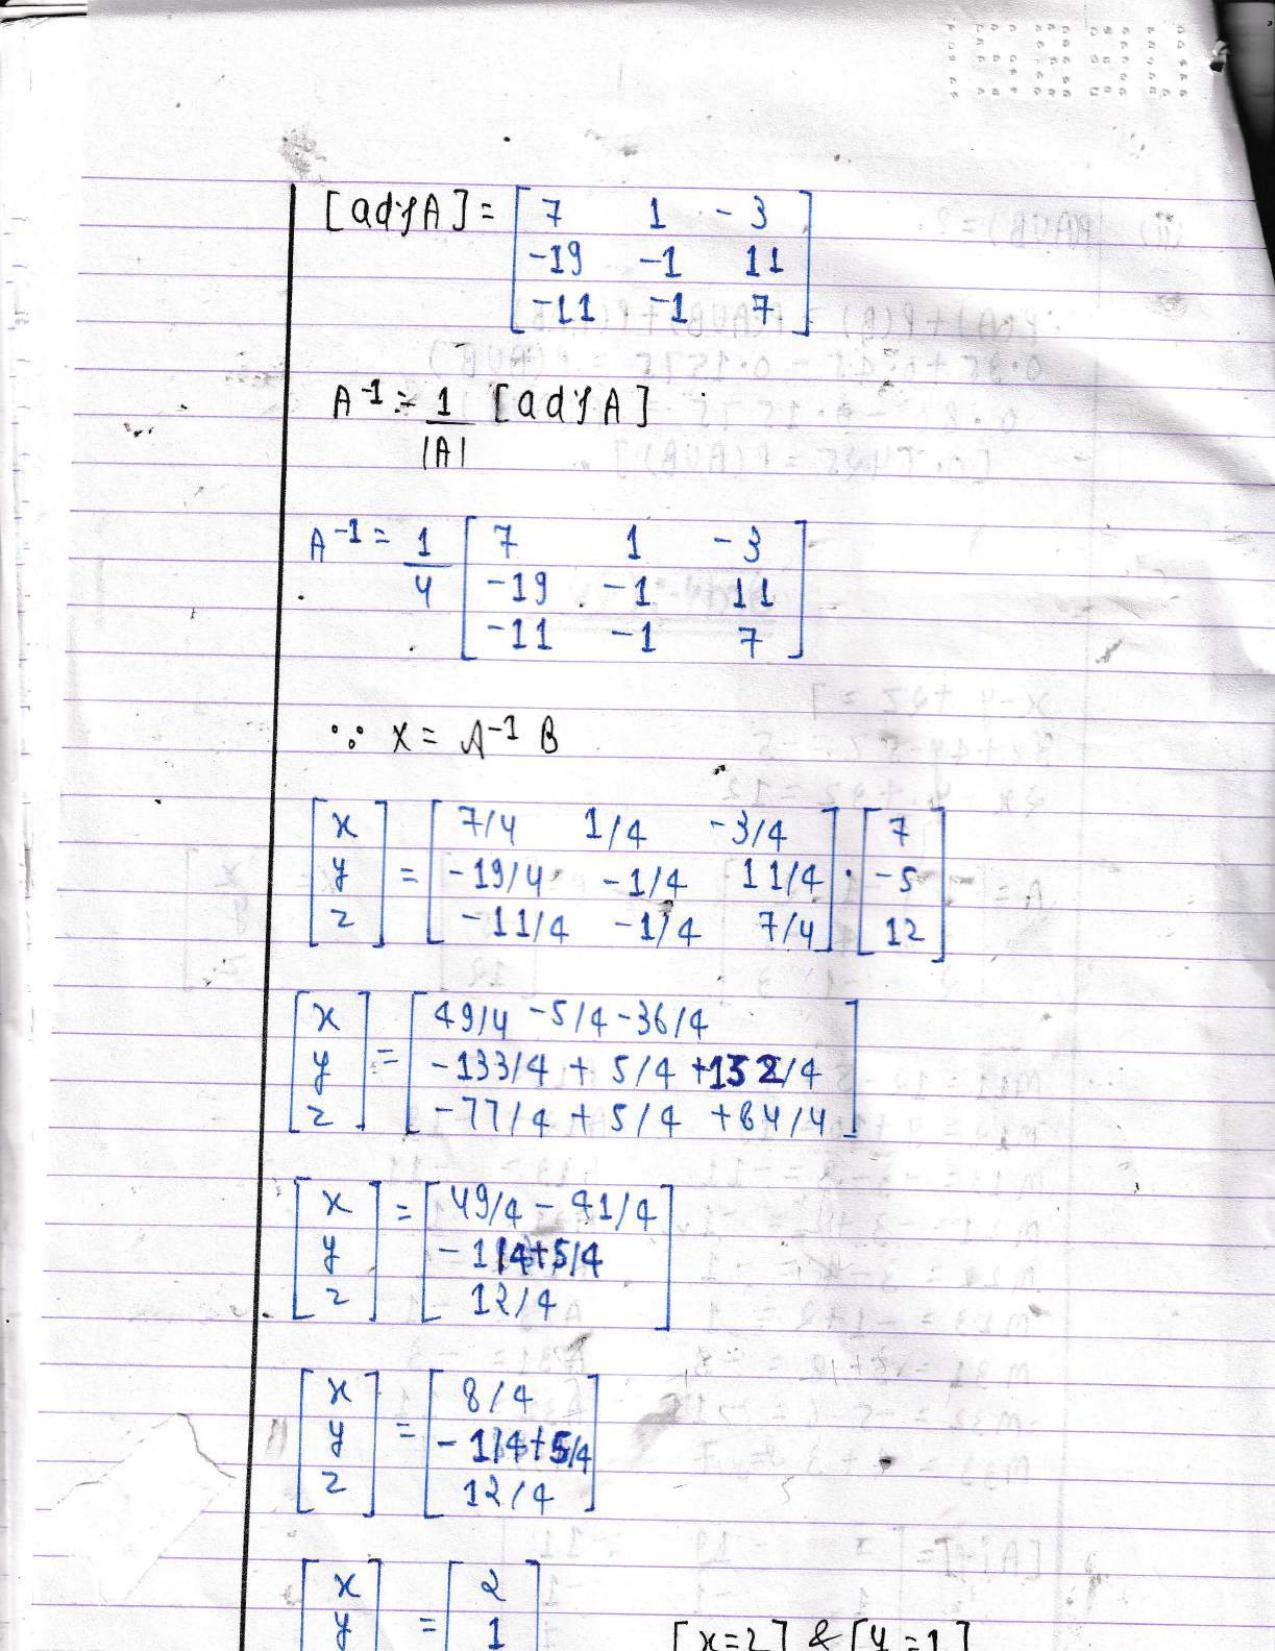 [adjA] = [ 7 1 -3
-19 -1 11
-11 -1 7 ]
A⁻¹ = 1/|A| [adjA]
A⁻¹ = 1/4 [ 7 1 -3
-19 -1 11
-11 -1 7 ]
∵ x = A⁻¹ B
[ x ] [ 7/4 1/4 -3/4 ] [ 7 ]
[ y ] = [ -19/4 -1/4 11/4 ] · [ -5 ]
[ z ] [ -11/4 -1/4 7/4 ] [ 12 ]
[ x ] [ 49/4 -5/4 -36/4 ]
[ y ] = [ -133/4 + 5/4 +132/4 ]
[ z ] [ -77/4 + 5/4 +84/4 ]
[ x ] = [ 49/4 - 41/4 ]
[ y ] [ -1/4+5/4 ]
[ z ] [ 12/4 ]
[ x ] [ 8/4 ]
[ y ] = [ -1/4+5/4 ]
[ z ] [ 12/4 ]
[ x ] [ 2 ]
[ y ] = [ 1 ] [x=2] & [y=1]